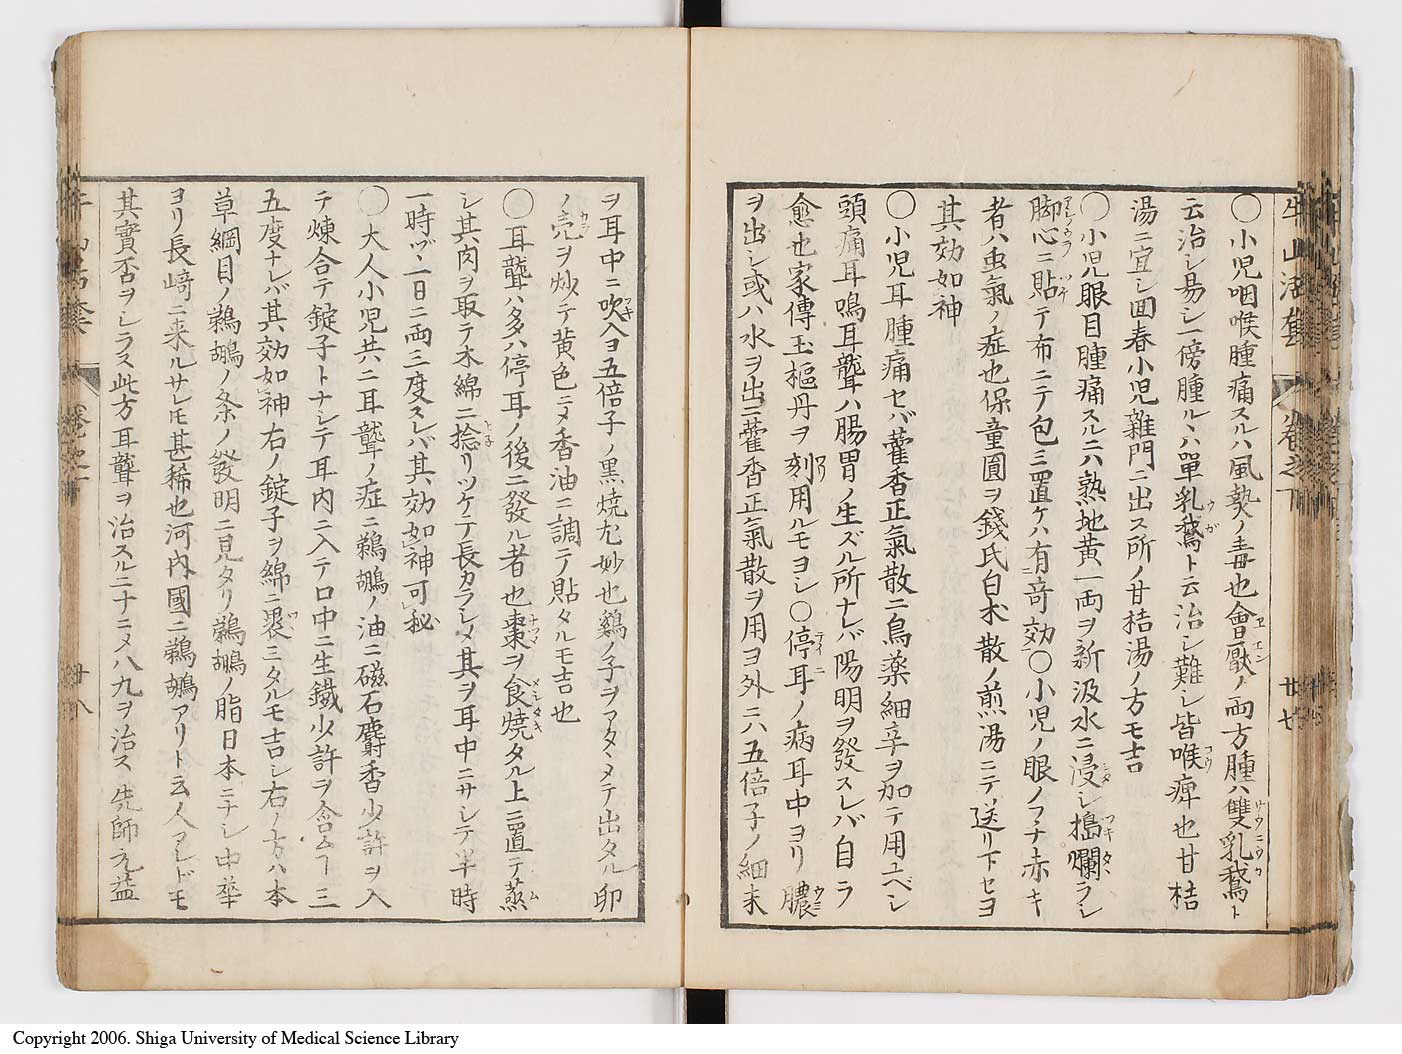 〇小児咽喉腫痛スルハ風熱ノ毒也會厭ノ両方腫ハ雙乳鵞ト
云治シ易シ一傍腫ルハ單乳鵞ト云治シ難シ皆喉痺也甘桔
湯ニ宜シ回春小児雜門ニ出ス所ノ甘桔湯ノ方モ吉
〇小児眼目腫痛スルニハ熟地黄一両ヲ新汲水ニ浸シ搗爛ラシ
脚心ニ貼テ布ニテ包ミ置ケハ有奇効〇小児ノ眼ノフチ赤キ
者ハ虫氣ノ症也保童圓ヲ錢氏白朮散ノ煎湯ニテ送リ下セヨ
其効如神
〇小児耳腫痛セバ藿香正氣散ニ烏薬細辛ヲ加テ用ユベシ
頭痛耳鳴耳聾ハ腸胃ノ生ズル所ナレバ陽明ヲ發スレバ自ラ
愈也家傳玉樞丹ヲ刻用ルモヨシ〇停耳ノ病耳中ヨリ膿
ヲ出シ或ハ水ヲ出ニ藿香正氣散ヲ用ヨ外ニハ五倍子ノ細末
牛山活套 卷之下 廿七
ヲ耳中ニ吹入ヨ五倍子ノ黒焼尤妙也鷄ノ子ヲアタヽメテ出タル卵
ノ売ヲ炒テ黄色ニメ香油ニ調テ貼タルモ吉也
〇耳聾ハ多ハ停耳ノ後ニ發ル者也棗ヲ食焼タル上ニ置テ蒸
シ其肉ヲ取テ木綿ニ捻リツケテ長カラシメ其ヲ耳中ニサシテ半時
一時ヅヽ一日ニ両三度スレバ其効如神可秘
〇大人小児共ニ耳聾ノ症ニ鵜鶘ノ油ニ磁石麝香少許ヲ入
テ煉合テ錠子トナシテ耳内ニ入テ口中ニ生鐵少許ヲ含ムヿ三
五度ナレバ其効如神右ノ錠子ヲ綿ニ裹ミタルモ吉シ右ノ方ハ本
草綱目ノ鵜鶘ノ条ノ發明ニ見タリ鵜鶘ノ脂日本ニナシ中華
ヨリ長﨑ニ来ルサレ𪜈甚稀也河内國ニ鵜鶘アリト云人アレドモ
其實否ヲシラス此方耳聾ヲ治スルニ十ニメ八九ヲ治ス先師元益
廿八
Copyright 2006. Shiga University of Medical Science Library